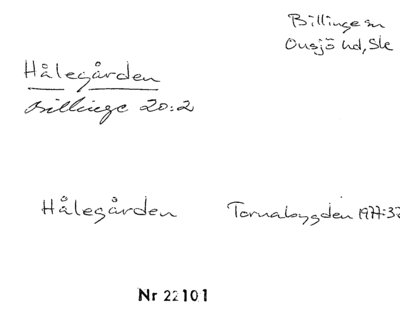 Billinge sn
Onsjö hd, Sk
Hålegården
Billinge 20:2
Hålegården Tornabygden 1977:37
Nr 22101